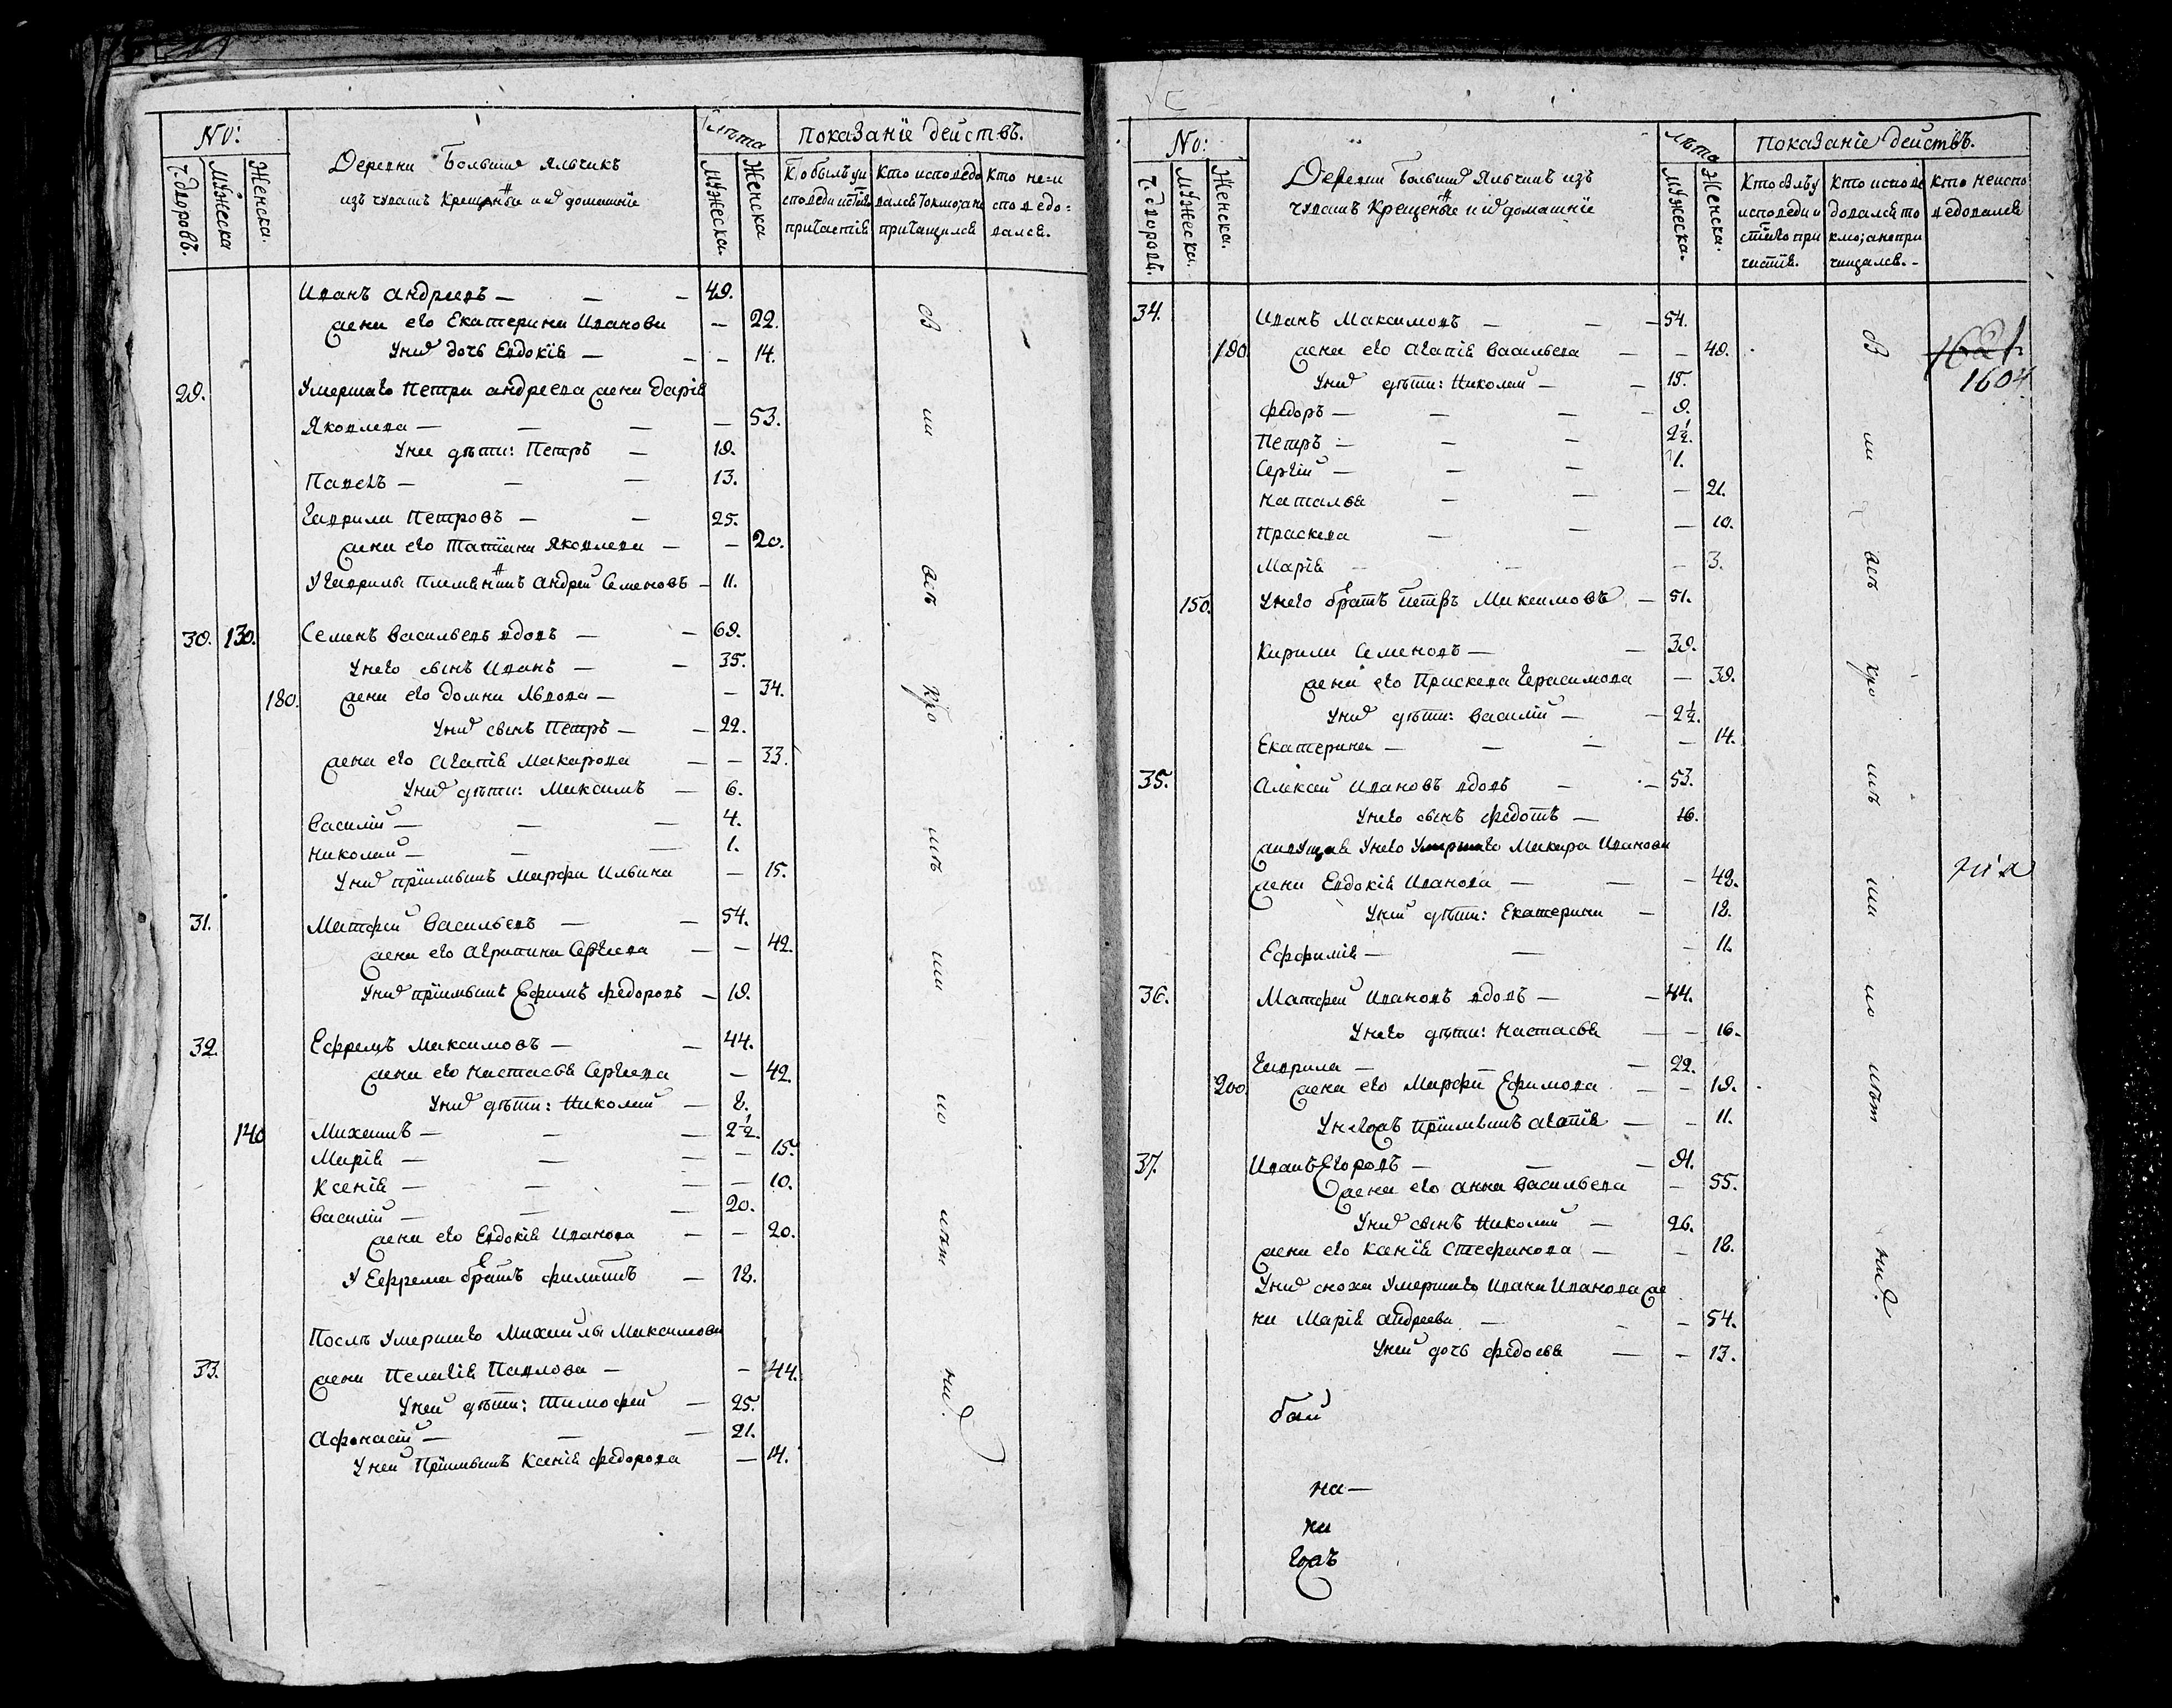 No:
ч. дворовъ.
Мужеска
Женска.
Деревни Большие Яльчикъ
изъ чувашъ Крещеные и их домашніе
Лѣта
Мужеска.
Женска
показаніе действъ.
Кто былъ у и
споведи и стаго
причастія
Кто исповедо
вался токмо; а не
причащался
Кто не и
споведо=
вался.
Иванъ Андреевъ — 49.
жена его Екатерина Иванова — 22.
У них дочь Евдокія — 14.
29. Умершаго Петра Андреева жена Дарія
Яковлева — 53.
У нее дѣти: Петръ — 19.
Павелъ — 13.
Гаврила Петровъ — 25.
жена его Татіана Яковлева — 20.
У Гаврилы племенникъ Андрей Семеновъ — 11.
30. 130. Семенъ Васильевъ вдовъ — 69.
У него сынъ Иванъ — 35.
180. жена его Домна Львова — 34.
У них сынъ Петръ — 22.
жена его Агапія Макарова — 33.
У них дѣти: Максимъ — 6.
Василій — 4.
Николай — 1.
У них пріимышъ Марфа Ильина — 15.
31. Матфей Васильевъ — 54.
жена его Агрипина Сергеева — 42.
У них пріимышъ Ефимъ Федоровъ — 19.
32. Ефремъ Максимовъ — 44.
жена его Настасья Сергеева — 42.
У них дѣти: Николай — 8.
140 Михаилъ — 2½.
Марія — 15.
Ксенія — 10.
Василій — 20.
жена его Евдокія Иванова — 20.
У Ефрема братъ Филиппъ — 18.
Послѣ умершаго Михаилы Максимова
33. жена Пелагія Павлова — 44.
У ней дѣти: Тимофей — 25.
Афонасій — 21.
У ней пріимышъ Ксенія Федорова — 14.
No:
ч. дворовъ.
Мужеска.
Женска.
Деревни Большие Яльчикъ изъ
чувашъ Крещеные и их домашніе
лѣта
Мужеска.
Женска.
показаніе действъ.
Кто былъ у
исповеди и
стаго при
частія.
Кто испове
довался то
кмо; а не при
чащался.
Кто неиспо
ведовался
34. Иванъ Максимовъ — 54.
190 жена его Агапія Васильева — 49.
У них дѣти: Николай — 15.
Федоръ — 9.
Петръ — 2½.
Сергій — 1.
Наталья — 21.
Праскева — 10.
Марія — 3.
150. У него братъ Петръ Максимовъ — 51.
Кирила Семеновъ — 39.
жена его Праскева Герасимова — 39.
У них дѣти: Василій — 2½.
Екатерина — 14.
35. Алексей Ивановъ вдовъ — 53.
У него сынъ Федотъ — 16.
живущая у него умершаго Макара Иванова
жена Евдокія Иванова — 48.
У ней дѣти: Екатерина — 18.
Ефимія — 11.
36. Матфей Ивановъ вдовъ — 44.
У него дѣти: Настасья — 16.
Гаврила — 22.
200 жена его Марфа Ефимова — 19.
У него жъ пріимышъ Агапія — 11.
37. Иванъ Егоровъ — 91.
жена его Анна Васильева — 55.
У них сынъ Николай — 26.
жена его Ксенія Стефанова — 18.
У них сноха умершаго Ивана Иванова же
на Марія Андреева — 54.
У ней дочь Федосья — 13.
1604